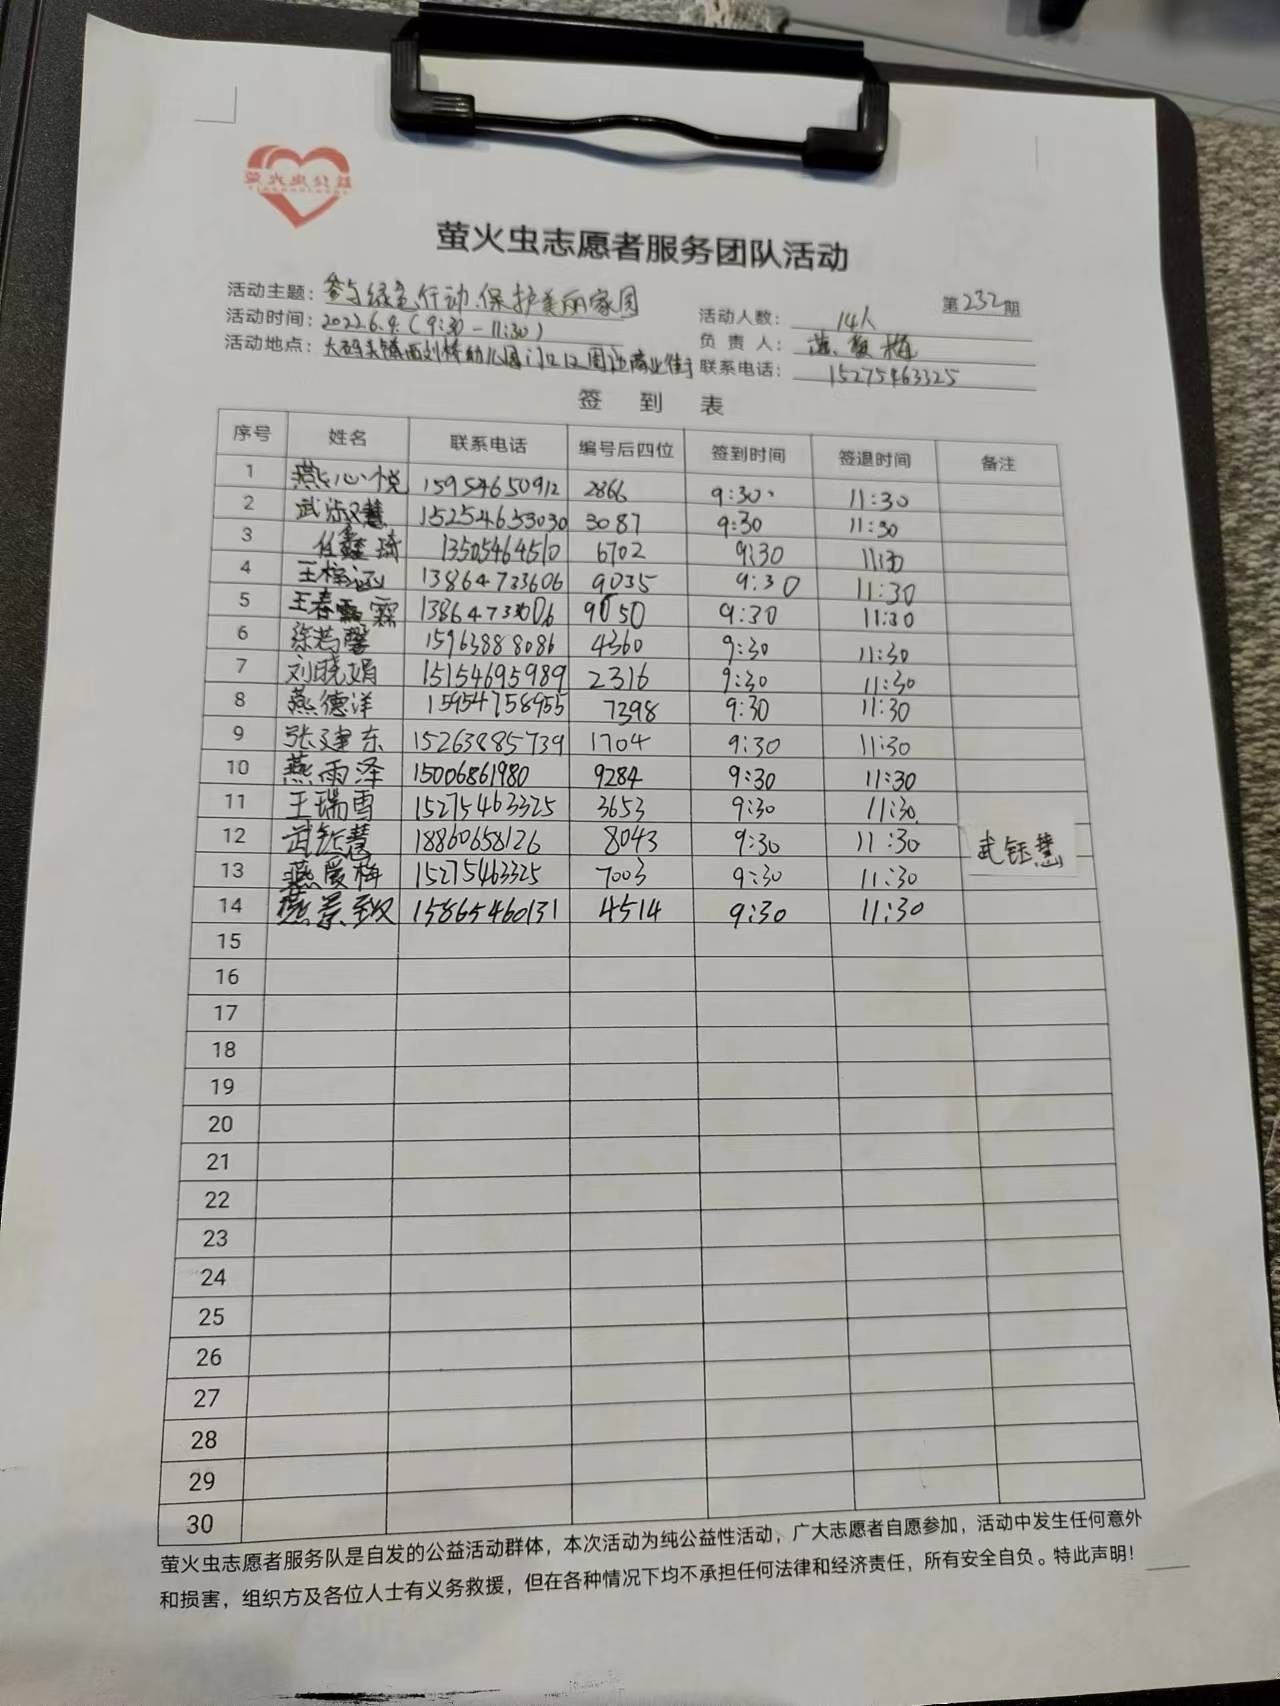 萤火虫公益
萤火虫志愿者服务团队活动
第232期
活动主题：参与绿色行动、保护美丽家园
活动时间：2022.6.9.（9:30－11:30）
活动地点：大码头镇西刘桥幼儿园门口及周边商业街
活动人数：14人
负责人：燕爱梅
联系电话：15275463325
签 到 表
序号 姓名 联系电话 编号后四位 签到时间 签退时间 备注
1 燕心悦 15954650912 2866 9:30 11:30
2 武 慧 15254653030 3087 9:30 11:30
3 任鑫琦 13505464510 6702 9:30 11:30
4 王梓涵 13864733606 9035 9:30 11:30
5 王春霖 13864733606 9050 9:30 11:30
6 徐若馨 15963888086 4360 9:30 11:30
7 刘晓娟 15154695989 2316 9:30 11:30
8 燕德洋 15954758955 7398 9:30 11:30
9 张建东 15263885739 1704 9:30 11:30
10 燕雨泽 15006861980 9284 9:30 11:30
11 王瑞雪 15275463325 3653 9:30 11:30
12 武钰慧 18860658126 8043 9:30 11:30 武钰慧
13 燕爱梅 15275463325 7003 9:30 11:30
14 燕景致 15865460131 4514 9:30 11:30
15
16
17
18
19
20
21
22
23
24
25
26
27
28
29
30
萤火虫志愿者服务队是自发的公益活动群体，本次活动为纯公益性活动，广大志愿者自愿参加，活动中发生任何意外
和损害，组织方及各位人士有义务救援，但在各种情况下均不承担任何法律和经济责任，所有安全自负。特此声明！